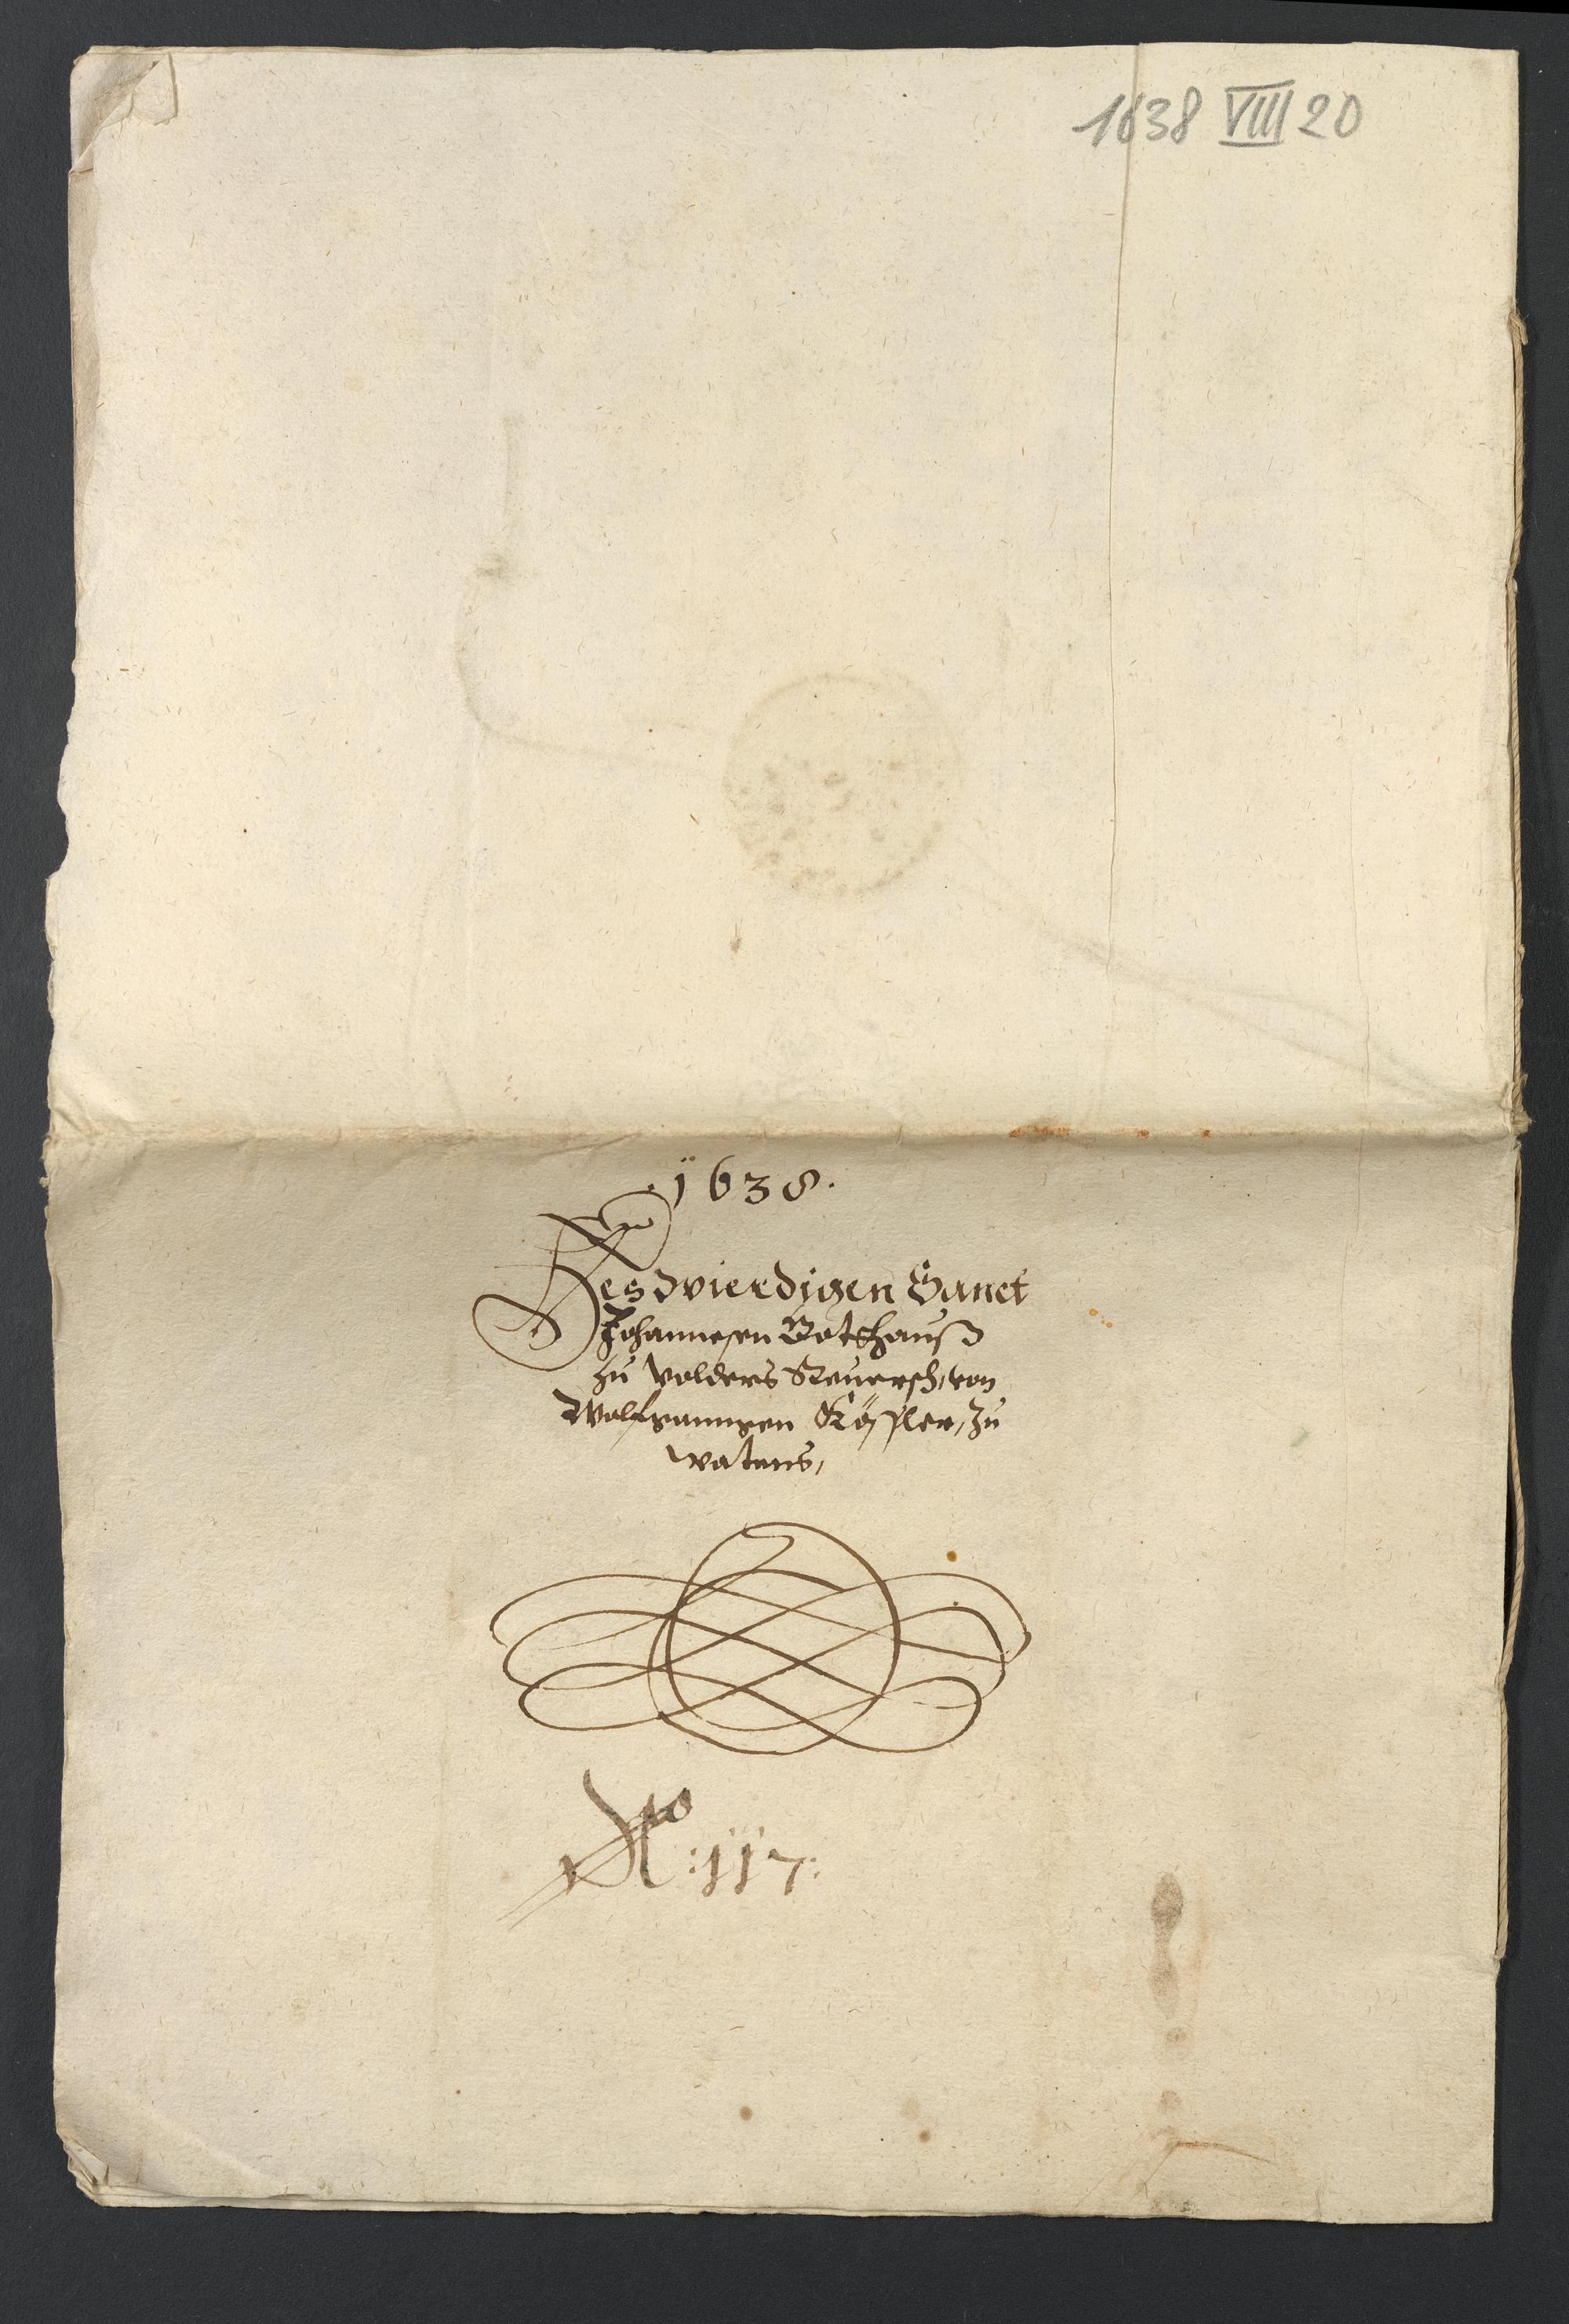 1638 VIII 20
.1638.
Des Wierdigen Sanct
Johannesen Gotshauß
zu Volders Reuersch, von
Wolfgaungen Kößler, zu
Watens,
No: 117: